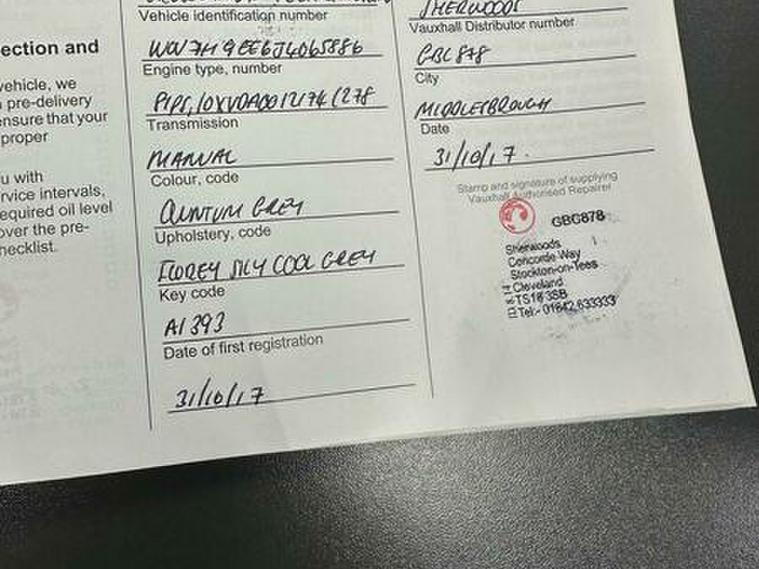 ection and
vehicle, we
pre-delivery
ensure that your
proper
u with
rvice intervals,
equired oil level
over the pre-
hecklist.
Vehicle identification number
Engine type, number
Transmission
MANUAL
Colour, code
QUNTUM GREY
Upholstery, code
COOL GREY
Key code
A1393
Date of first registration
31/10/17
SHERWOODS
Vauxhall Distributor number
GBC 878
City
MIDDLESBROUGH
Date
31/10/17.
Stamp and signature of supplying
Vauxhall Authorised Repairer
GBC878
Sherwoods
Concorde Way
Stockton-on-Tees
Cleveland
TS18 3SB
Tel:- 01642 633333